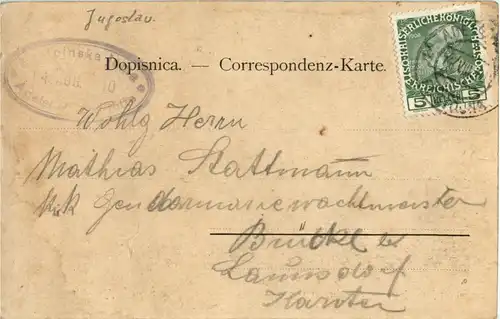 Jugoslav.
Dopisnica. — Correspondenz-Karte.
KAISERLICHE KÖNIGLICHE
ÖSTERREICHISCHE POST
5 5
Wohlg Herrn
Mathias Stattmann
k u k Gendarmeriewachtmeister
Brückl bei
Launsdorf
Kärnten